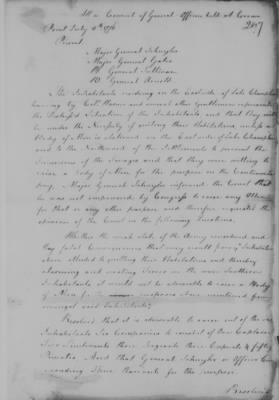 At a Council of General Officers held at Crown
Point July 6th 1776
2897
Present
Major General Schuyler
Major General Gates
B. General Sullivan
B. General
The Inhabitants residing on the Eastside of Lake Champlain
having by Coll. and several other Gentlemen represented
the Distressed Situation of the Inhabitants and that they will
be under the Necessity of quitting their Habitations unless a
Body of Men is stationed on the Eastside of Lake Champlain
and to the Northward of the Settlements to prevent the
Incursions of the Savages and that they were willing to
raise a Body of Men for the purpose in the Continental
pay, Major General Schuyler informed the Council that
he was not impowered by Congress to raise any
for that or any other purpose and therefore requested the
opinion of the Council on the following Questions.
Whether the weak state of the Army considered and
the fatal Consequences that may result from the Inhabitants
above alluded to quitting their Habitations and thereby
alarming and causing others in the more Southern
Inhabitants it would not be adviseable to raise a Body
of Men for the purposes above mentioned from
amongst said Inhabitants.
Resolved that it is adviseable to raise out of the said
Inhabitants Six Companies to consist of One Captain
Two Lieutenants three Sergeants three Corporals & fifty
Privates And that General Schuyler or Officer
issue Warrants for the purpose.
Resolved